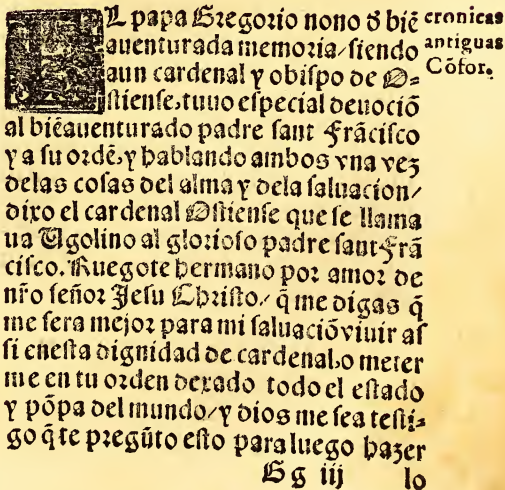 EL papa Gregorio nono d̄ biē
auenturada memoria/ siendo
aun cardenal y obispo de O-
stiense, tuuo especial deuociō
al biēauenturado padre sant Frācisco
y a su ordē, y hablando ambos vna vez
delas cosas del alma y dela saluacion/
dixo el cardenal Ostiense que se llama
ua Ugolino al glorioso padre sant Frā
cisco. Ruegote hermano por amor de
nr̄o señor Jesu Christo/ q̄ me digas q̄
me sera mejor para mi saluaciō viuir as
si enesta dignidad de cardenal, o meter
me en tu orden dexādo todo el estado
y pōpa del mundo/ y dios me sea testi-
go q̄ te pregūto esto para luego hazer
Gg iij lo
cronicas
antiguas
Cōfor.